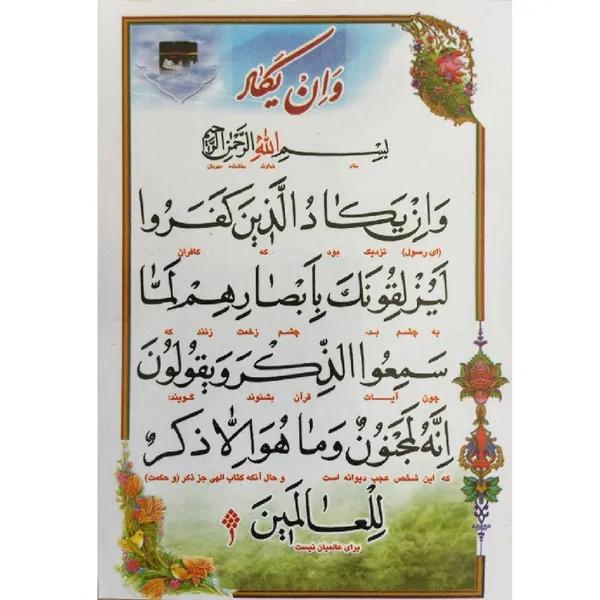 وَاِنْ یَکاد
بِسْمِ اللّٰهِ الرَّحْمٰنِ الرَّحیمِ
بنام خداوند بخشنده مهربان
وَاِنْ یَکادُ الَّذینَ کَفَرُوا
(ای رسول) نزدیک بود که کافران
لَیُزْلِقُونَکَ بِاَبْصارِهِمْ لَمّا
به چشم بد، چشم زخمت زنند که
سَمِعُوا الذِّکْرَ وَیَقُولُونَ
چون آیات قرآن بشنوند گویند:
اِنَّهُ لَمَجْنُونٌ وَما هُوَ اِلّا ذِکْرٌ
که این شخص عجب دیوانه است و حال آنکه کتاب الهی جز ذکر (و حکمت)
لِلْعالَمینَ
برای عالمیان نیست